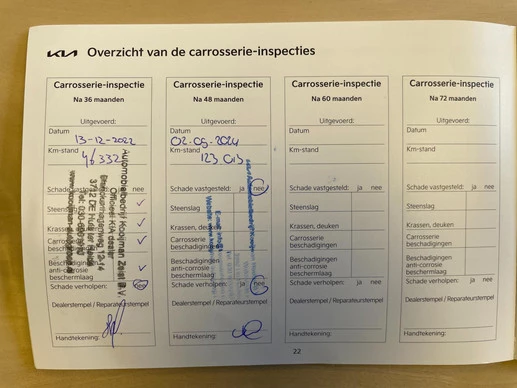 KIA Overzicht van de carrosserie-inspecties
Carrosserie-inspectie
Na 36 maanden
Uitgevoerd:
Datum
13-12-2022
Km-stand
46332
Schade vastgesteld: ja nee
Steenslag
Krassen, deuken
Carrosserie
beschadigingen
Beschadigingen
anti-corrosie
beschermlaag
Schade verholpen: ja nee
Dealerstempel / Reparateurstempel
Handtekening:
Automobielbedrijf Kooijman Zeist B.V.
Officieel KIA dealer
Carrosserie-inspectie
Na 48 maanden
Uitgevoerd:
Datum
Km-stand
Schade vastgesteld: ja nee
Steenslag
Krassen, deuken
Carrosserie
beschadigingen
Beschadigingen
anti-corrosie
beschermlaag
Schade verholpen: ja nee
Dealerstempel / Reparateurstempel
Handtekening:
Carrosserie-inspectie
Na 60 maanden
Uitgevoerd:
Datum
Km-stand
Schade vastgesteld: ja nee
Steenslag
Krassen, deuken
Carrosserie
beschadigingen
Beschadigingen
anti-corrosie
beschermlaag
Schade verholpen: ja nee
Dealerstempel / Reparateurstempel
Handtekening:
Carrosserie-inspectie
Na 72 maanden
Uitgevoerd:
Datum
Km-stand
Schade vastgesteld: ja nee
Steenslag
Krassen, deuken
Carrosserie
beschadigingen
Beschadigingen
anti-corrosie
beschermlaag
Schade verholpen: ja nee
Dealerstempel / Reparateurstempel
Handtekening:
22